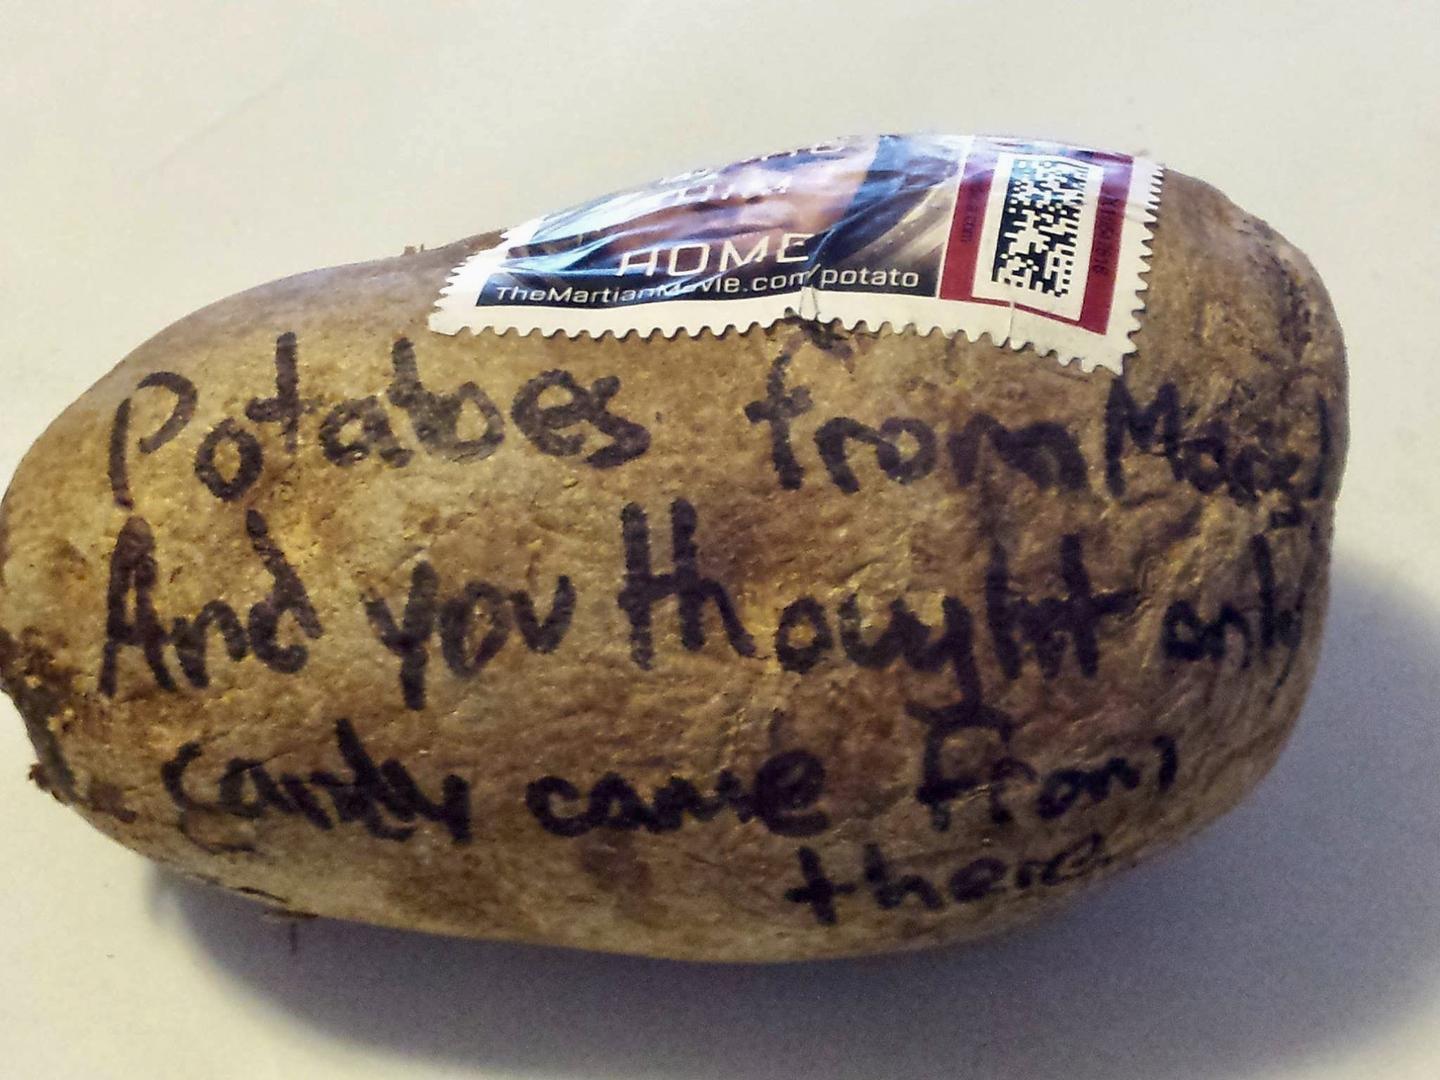 HOME
TheMartianMovie.com/potato
Potatoes from Mars!
And you thought only
candy came from
there